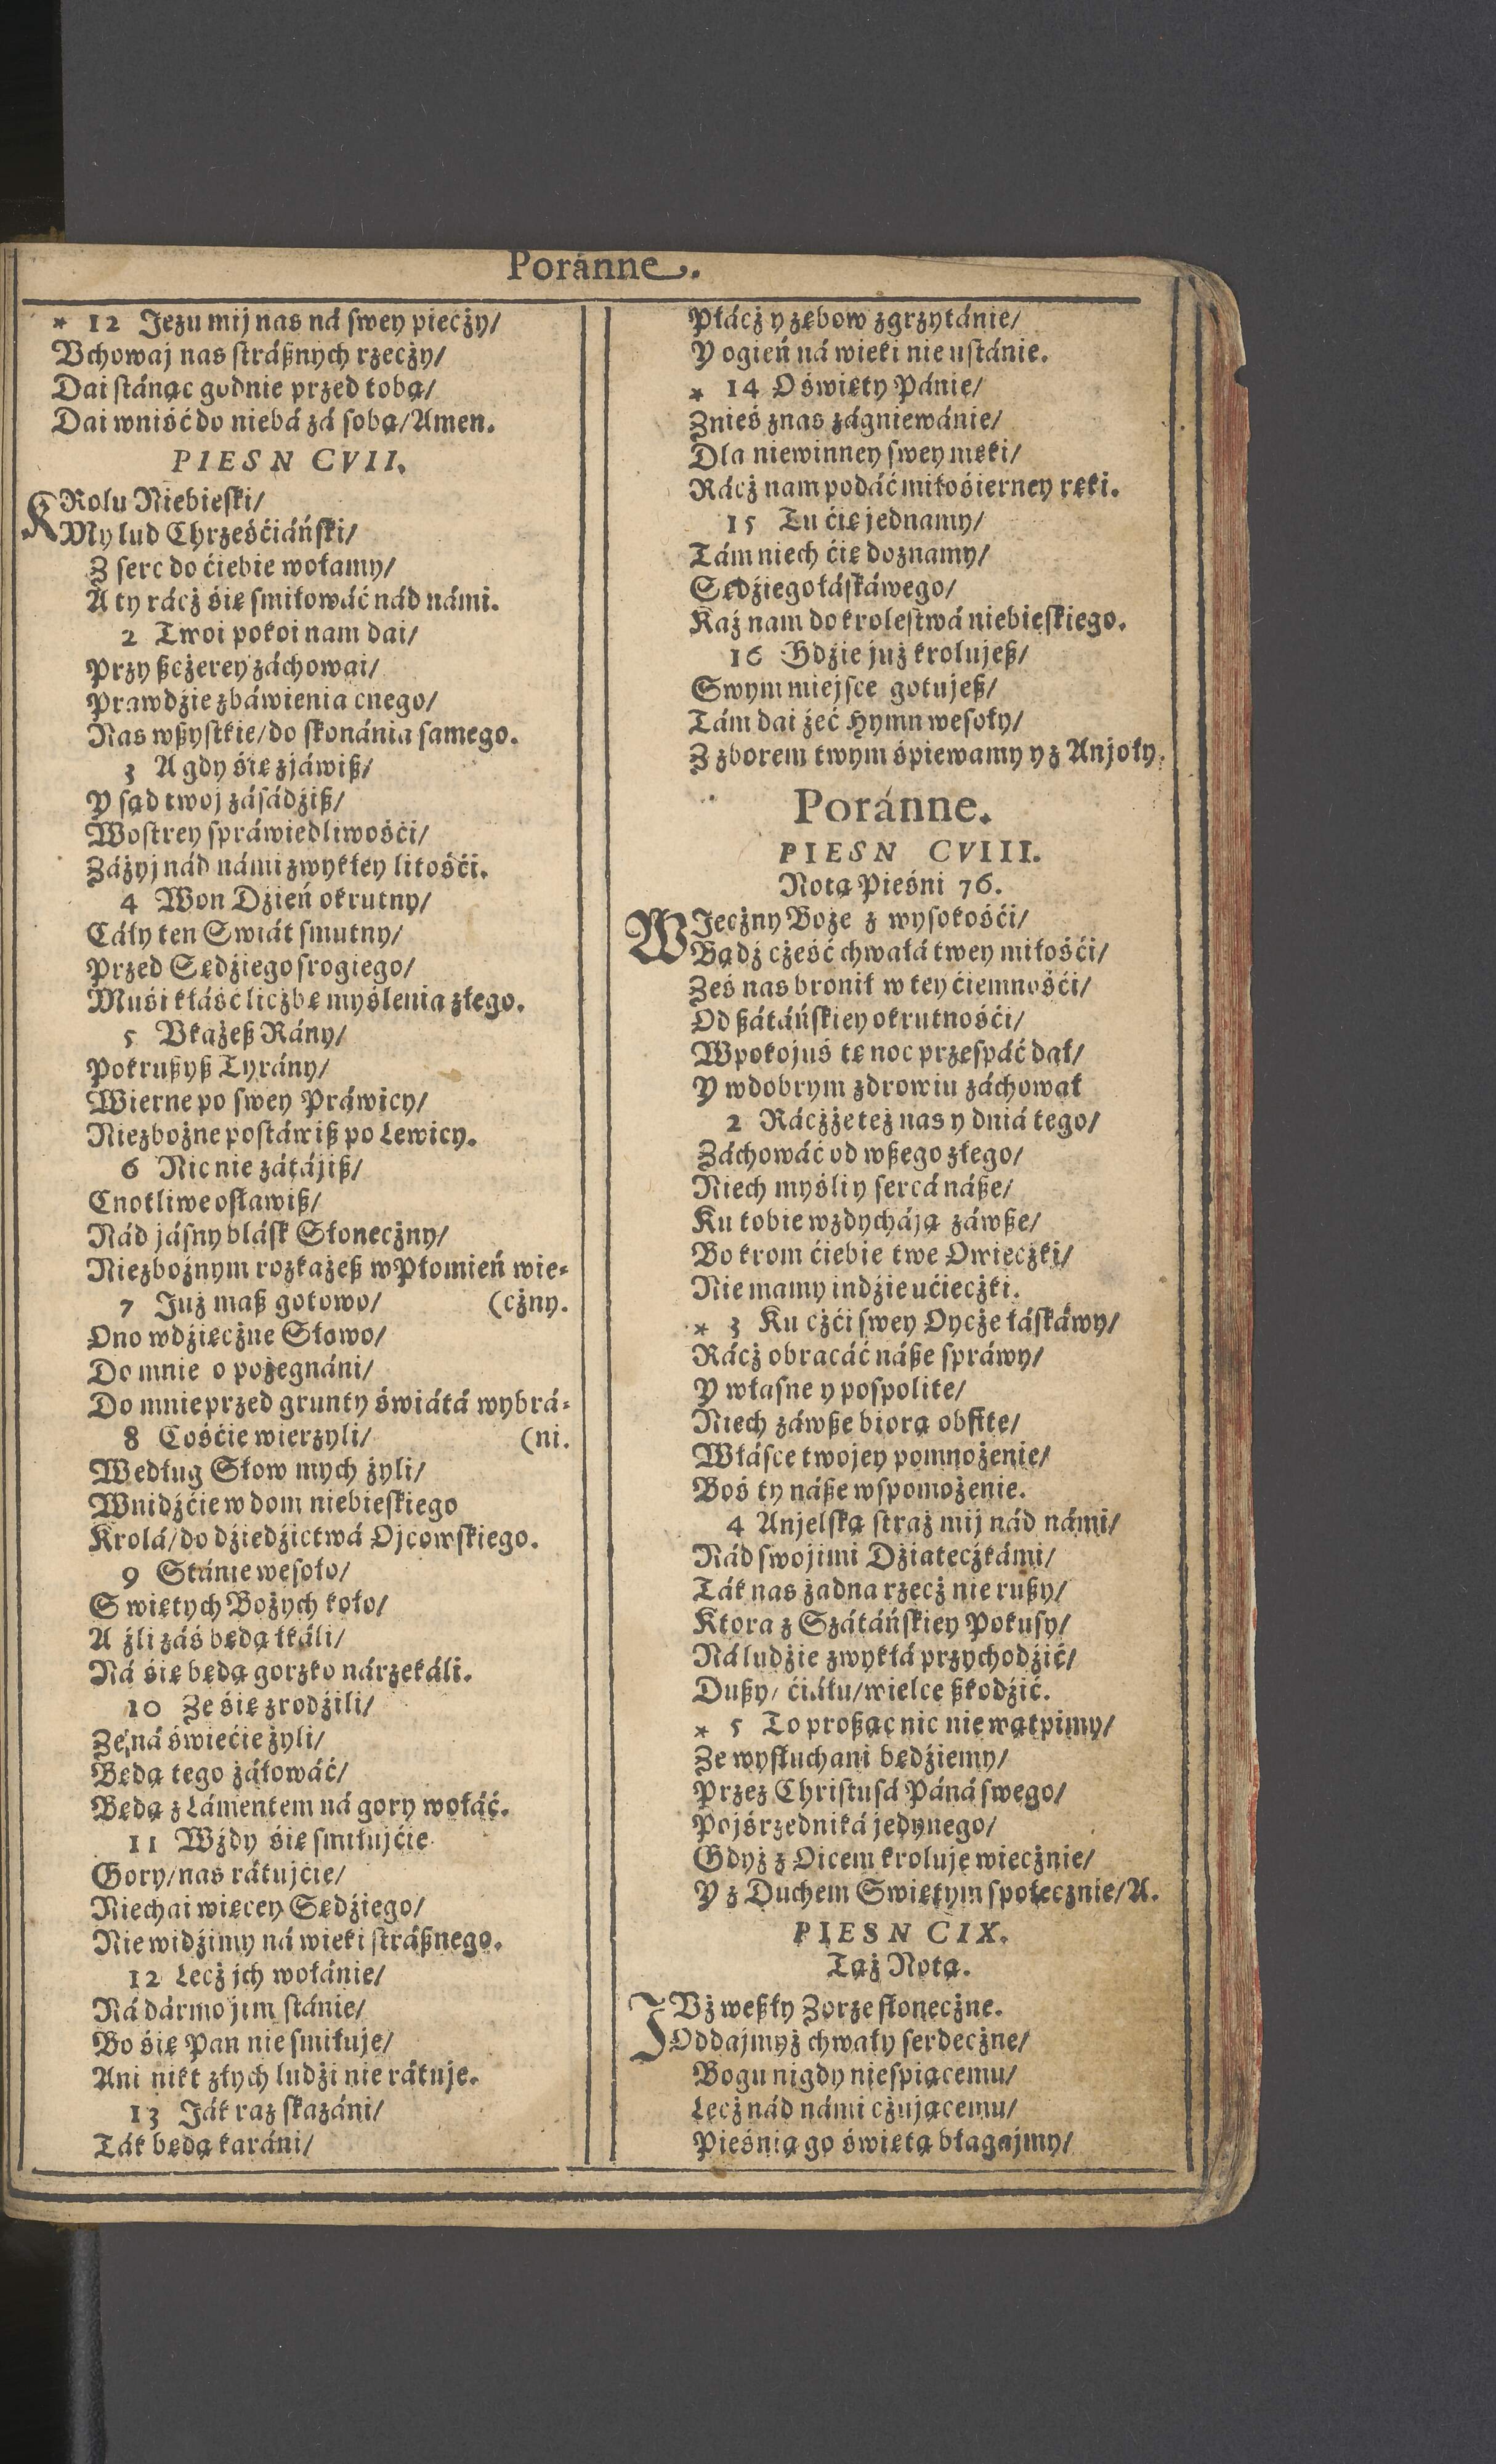 Poránne.
* 12 Jezu mij nas ná swey pieczy/
Vchowaj nas stráßnych rzeczy/
Dai stánąc godnie przed tobą/
Dai wniść do niebá zá sobą/Amen.
PIESN CVII.
KRolu Niebieski/
My lud Chrześćiáński/
Z serc do ćiebie wołamy/
A ty rácż śię smiłowáć nád námi.
2 Twoi pokoi nam dai/
Przy ßcżerey záchowai/
Prawdźie zbáwienia cnego/
Nas wßystkie/do skonánia samego.
3 A gdy śię zjáwiß/
Y sąd twoj zásádźiß/
Wostrey spráwiedliwośći/
Záżyj nád námi zwykłey litośći.
4 Won Dźień okrutny/
Cáły ten Swiát smutny/
Przed Sędźiego srogiego/
Muśi kłáść licżbę myślenia złego.
5 Vkażeß Rány/
Pokrußyß Tyrány/
Wierne po swey Práwicy/
Niezbożne postáwiß po Lewicy.
6 Nic nie zátájiß/
Cnotliwe osławiß/
Nád jásny blásk Słonecżny/
Niezbożnym rozkażeß w Płomień wie-
7 Już maß gotowo/ (cżny.
Ono wdźięcżne Słowo/
Do mnie o pożegnáni/
Do mnie przed grunty świátá wybrá-
8 Cośćie wierzyli/ (ni.
Według Słow mych żyli/
Wnidźćie w dom niebieskiego
Krolá/do dźiedźictwá Ojcowskiego.
9 Stánie wesoło/
Swiętych Bożych koło/
A źli záś będą łkáli/
Ná śię będą gorzko nárzekáli.
10 Ze śię zrodźili/
Ze ná świećie żyli/
Będą tego żáłowáć/
Będą z Lámentem ná gory wołáć.
11 Wżdy śię smiłujćie
Gory/nas rátujćie/
Niechai więcey Sędźiego/
Nie widźimy ná wieki stráßnego.
12 Lecż jch wołánie/
Ná dármo jim stánie/
Bo śię Pan nie smiłuje/
Ani nikt złych ludźi nie rátuje.
13 Ják raz skazáni/
Ták będą karáni/
Płácż y zębow zgrzytánie/
Y ogień ná wieki nie ustánie.
* 14 O święty Pánie/
Znieś z nas zágniewánie/
Dla niewinney swey męki/
Rácż nam podáć miłośierney ręki.
15 Tu ćię jednamy/
Tám niech ćię doznamy/
Sędźiego łáskáwego/
Każ nam do krolestwá niebieskiego.
16 Gdźie już krolujeß/
Swym miejsce gotujeß/
Tám dai żeć Hymn wesoły/
Z zborem twym śpiewamy y z Anjoły.
Poránne.
PIESN CVIII.
Nota Pieśni 76.
WJecżny Boże z wysokośći/
Bądź cżeść chwałá twey miłośći/
Ześ nas bronił w tey ćiemnośći/
Od ßátáńskiey okrutnośći/
Wpokojuś tę noc przespáć dał/
Y wdobrym zdrowiu záchował
2 Rácżże też nas y dniá tego/
Záchowáć od wßego złego/
Niech myśli y sercá náße/
Ku tobie wzdycháją záwße/
Bo krom ćiebie twe Owiecżki/
Nie mamy indźie ućiecżki.
* 3 Ku cżći swey Oycże łáskáwy/
Rácż obracáć náße spráwy/
Y własne y pospolite/
Niech záwße biorą obfite/
W łásce twojey pomnożenie/
Boś ty náße wspomożenie.
4 Anjelską straż mij nád námi/
Nád swojimi Dźiatecżkámi/
Ták nas żadna rzecż nie rußy/
Ktora z Szátáńskiey Pokusy/
Ná ludźie zwykłá przychodźić/
Dußy/ ćiáłu/wielce ßkodźić.
* 5 To proßąc nic nie wątpimy/
Ze wysłuchani będźiemy/
Przez Christusá Páná swego/
Pojśrzedniká jedynego/
Gdyż z Oicem kroluje wiecżnie/
Y z Duchem Swiętym społecznie/A.
PIESN CIX.
Taż Nota.
JVż weßły Zorze słonecżne.
Oddajmyż chwały serdecżne/
Bogu nigdy nieśpiącemu/
Lecż nád námi cżującemu/
Pieśnią go świętą błagajmy/